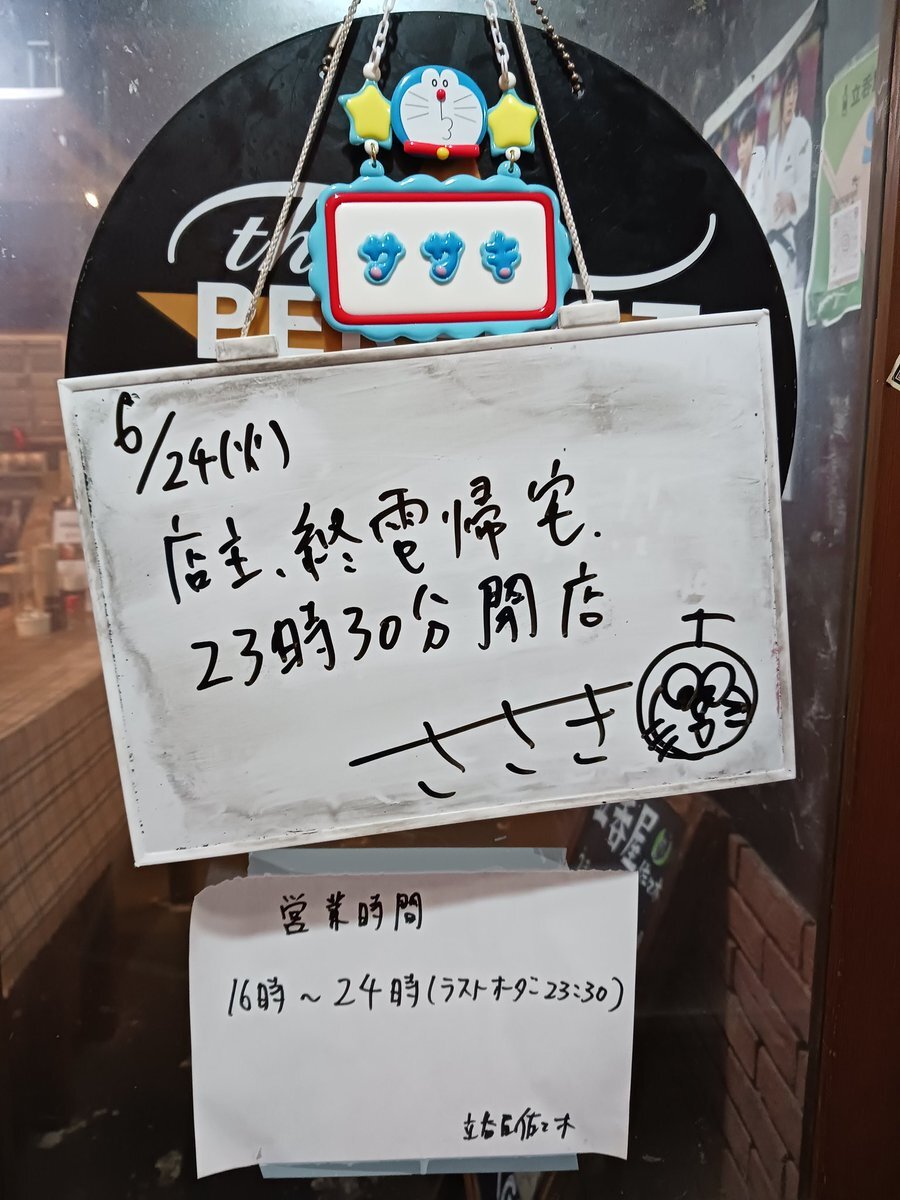 th
PE
ササキ
6/24(火)
店主、終電帰宅.
23時30分閉店
ささき
営業時間
16時～24時(ラストオーダー23:30)
立呑屋佐々木